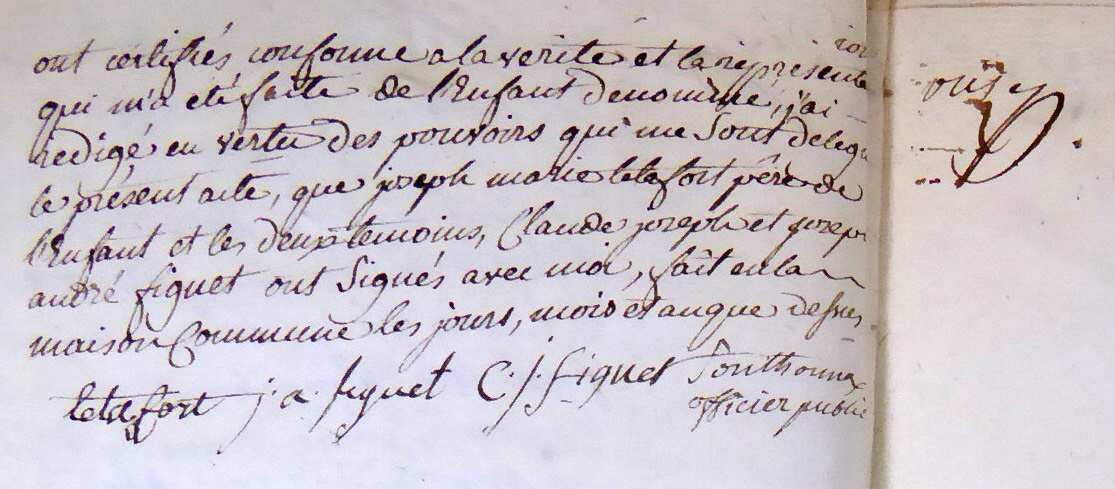 ont certifiés conforme a la verite et la representa
tion
qui m'a eté faite de l'Enfant denommé, j'ai
redigé en vertu des pouvoirs qui me Sont delegu
le présent acte, que joseph marie letafort pêre de
l'Enfant et les deux temoins, Claude joseph et joseph
andré figuet ont Signés avec moi, fait en la
maison Commune les jours, mois et an que dessus
letafort j. a. figuet C. j. figuet Sonthonnax
officier public